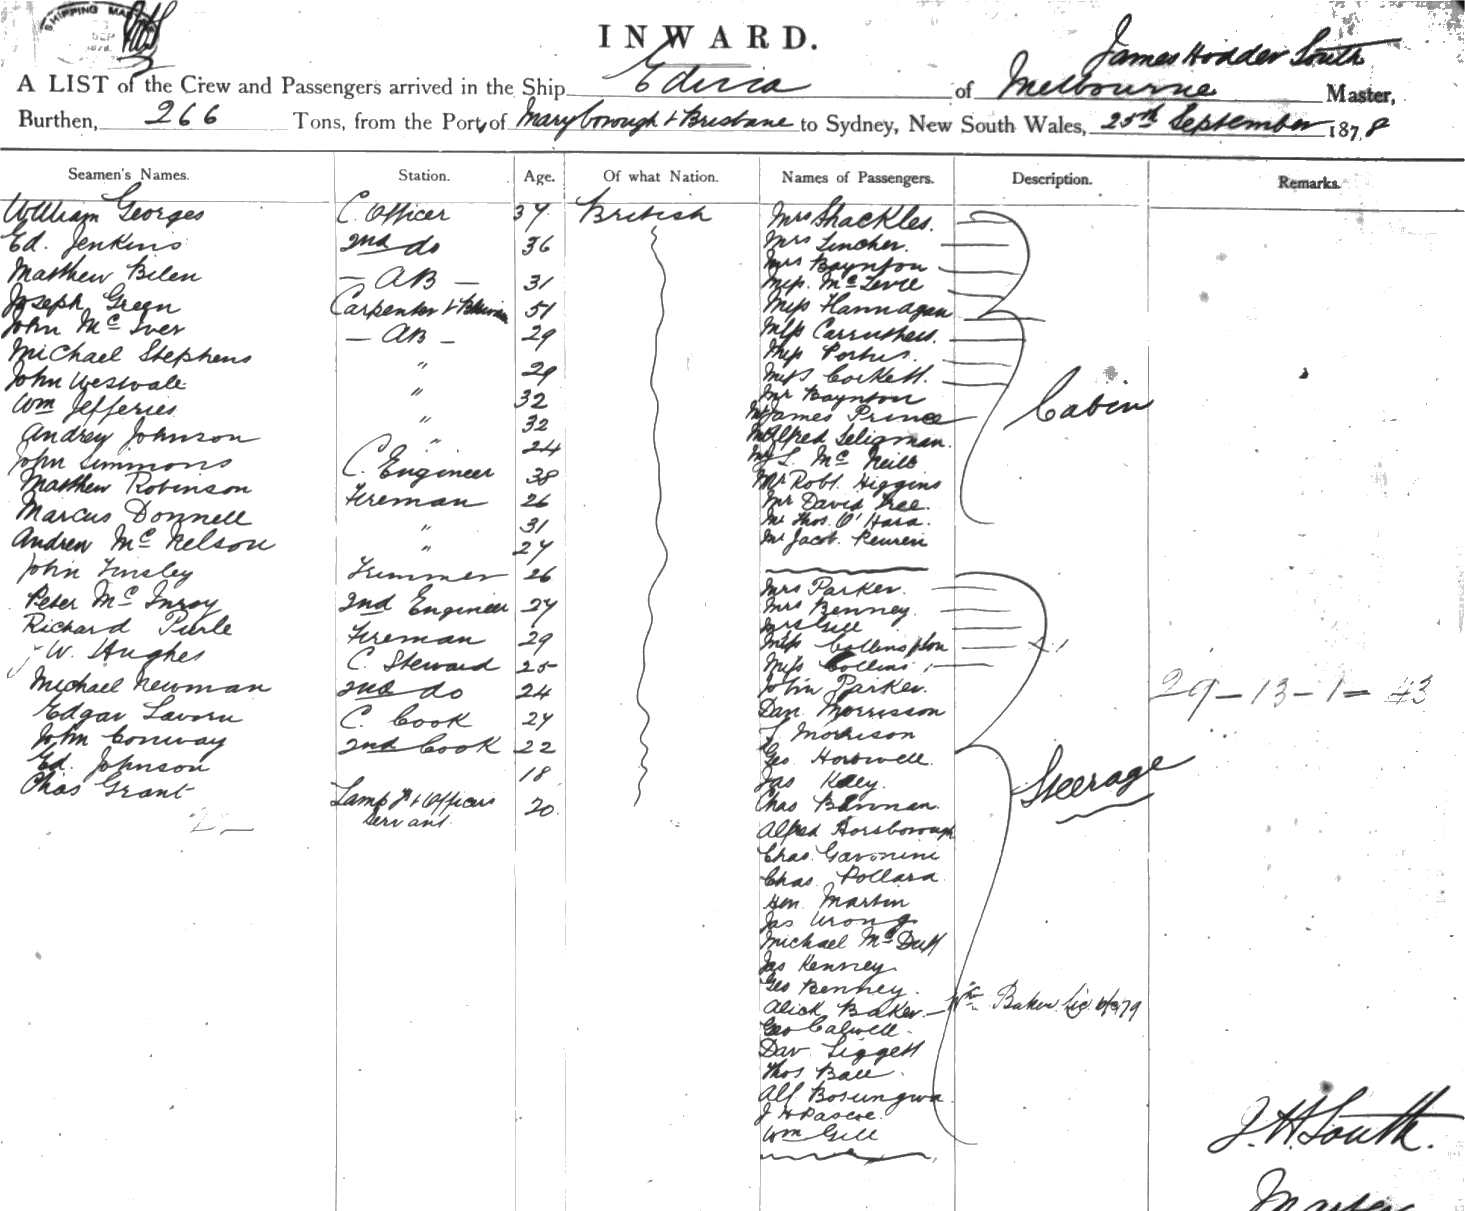 SHIPPING MAS
SEP
INWARD.
James Hodder South
A LIST of the Crew and Passengers arrived in the Ship Edina of Melbourne Master,
Burthen, 266 Tons, from the Port, of Maryborough & Brisbane to Sydney, New South Wales, 25th September 1878
Seamen's Names. Station. Age. Of what Nation. Names of Passengers. Description. Remarks.
William Georges C. Officer 37 British Mrs Shackles.
Ed. Jenkins 2nd do 36 Mrs Lincher.
Matthew Bilen — AB — 31 Mrs Boynton
Miss. Mc
Joseph Green Carpenter & 51 Miss Hannagan
John McIver — AB — 29 Miss Carruthers.
Michael Stephens " 29 Miss Portus.
John Westvale " 32 Miss Corkett.
Wm Jefferies " 32 Mr Boynton
Mr James Prince
Andrey Johnson " 24 Mr Alfred Seligman.
John Simmons C. Engineer 38 Mr S. McNeill
Matthew Robinson Fireman 26 Mr Robt. Higgins
Marcus Donnell " 31 Mr David Free.
Andrew McNelson " 27 Mr Thos. O'Hara.
Mr Jacob
Cabin
John Tinsley Trimmer 26 Mrs Parker.
Peter McInroy 2nd Engineer 27 Mrs Benney.
Richard Pirle Fireman 29 Mrs Gill
W. Hughes C. Steward 25 Miss
Miss Collins
Michael Newman 2nd do 24 John Parker.
Edgar Lavoru C. Cook 27 Dan Morrisson
29 — 13 — 1 = 43
John Conway 2nd Cook 22 Morrison
Ed. Johnson 18 Geo Horswell.
Chas Grant Lamp Tr & Officers Servant 20 Jas Kelly.
Chas Bannan.
Steerage
Alfred Horsborough
Chas. Gavonini
Chas. Pollard
Hen. Martin
Jas Wrong
Michael McDuff
Jas Kenney.
Geo Benney.
Alick Baker. — Wm Baker
Geo Calwell.
Dav Liggett
Thos Ball.
Alf Bosungwa
J H Pascoe.
Wm Gill
J. H. South.
Master